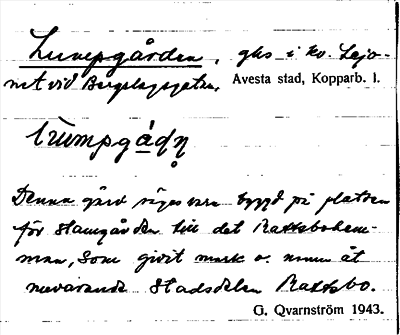 Lumpgården, ghs i kv. Lejo-
net vid Bergslagsgatan. Avesta stad, Kopparb. l.
lummpgådn
Denna gård säges vara byggd på platsen
för stamgården till det Rattsbohem-
man, som givit mark o. namn åt
nuvarande stadsdelen Rattsbo.
G. Qvarnström 1943.